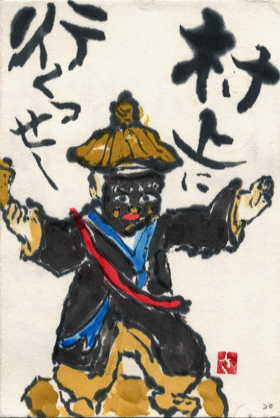 村上に
行くっせー